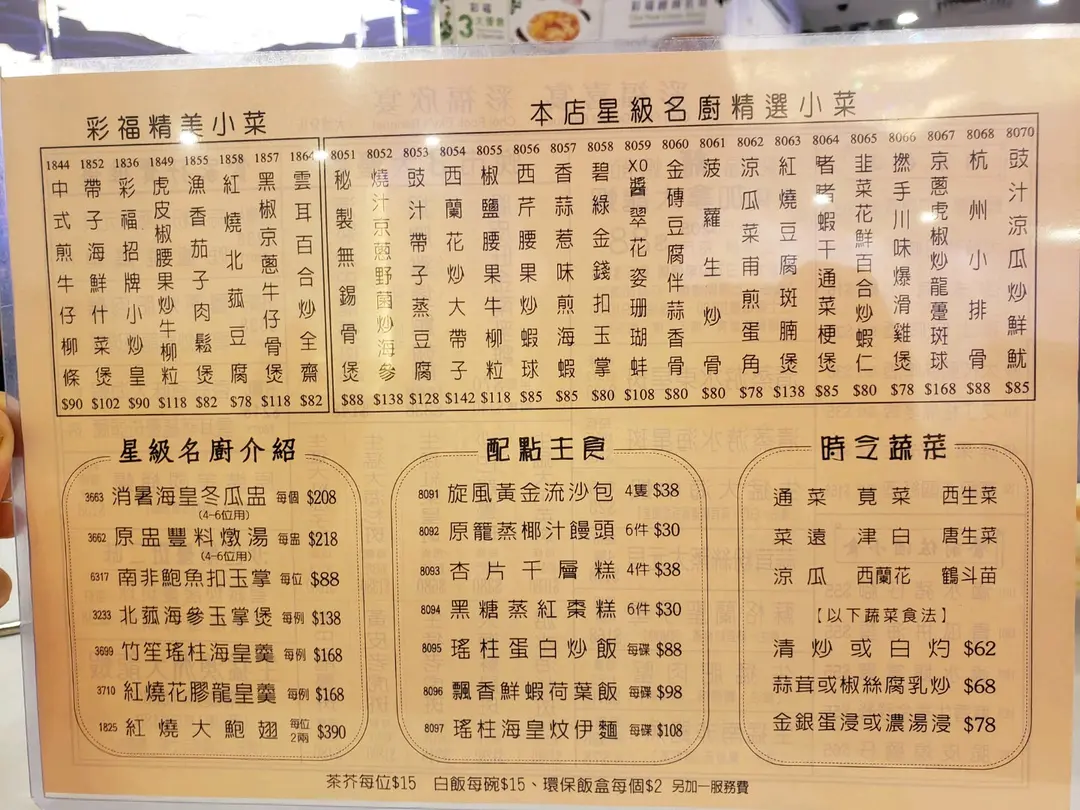 彩福
3大優惠
彩福精美小菜
1844 中式煎牛仔柳條 $90
1852 帶子海鮮什菜煲 $102
1836 彩福招牌小炒皇 $90
1849 虎皮椒腰果炒牛柳粒 $118
1855 漁香茄子肉鬆煲 $82
1858 紅燒北菰豆腐 $78
1857 黑椒京蔥牛仔骨煲 $118
1864 雲耳百合炒全齋 $82
本店星級名廚精選小菜
8051 秘製無錫骨煲 $88
8052 燒汁京蔥野菌炒海參 $138
8053 豉汁帶子蒸豆腐 $128
8054 西蘭花炒大帶子 $142
8055 椒鹽腰果牛柳粒 $118
8056 西芹腰果炒蝦球 $85
8057 香蒜惹味煎海蝦 $85
8058 碧綠金錢扣玉掌 $80
8059 XO醬翠花姿珊瑚蚌 $108
8060 金磚豆腐伴蒜香骨 $80
8061 菠蘿生炒骨 $80
8062 涼瓜菜甫煎蛋角 $78
8063 紅燒豆腐斑腩煲 $138
8064 啫啫蝦干通菜梗煲 $85
8065 韭菜花鮮百合炒蝦仁 $80
8066 撚手川味爆滑雞煲 $78
8067 京蔥虎椒炒龍躉斑球 $168
8068 杭州小排骨 $88
8070 豉汁涼瓜炒鮮魷 $85
星級名廚介紹
3663 消暑海皇冬瓜盅 每個 $208
(4-6位用)
3662 原盅豐料燉湯 每盅 $218
(4-6位用)
6317 南非鮑魚扣玉掌 每位 $88
3233 北菰海參玉掌煲 每例 $138
3699 竹笙瑤柱海皇羹 每例 $168
3710 紅燒花膠龍皇羹 每例 $168
1825 紅燒大鮑翅 每位2兩 $390
配點主食
8091 旋風黃金流沙包 4隻 $38
8092 原籠蒸椰汁饅頭 6件 $30
8093 杏片千層糕 4件 $38
8094 黑糖蒸紅棗糕 6件 $30
8095 瑤柱蛋白炒飯 每碟 $88
8096 飄香鮮蝦荷葉飯 每碟 $98
8097 瑤柱海皇炆伊麵 每碟 $108
時令蔬菜
通菜 莧菜 西生菜
菜遠 津白 唐生菜
涼瓜 西蘭花 鶴斗苗
【以下蔬菜食法】
清炒或白灼 $62
蒜茸或椒絲腐乳炒 $68
金銀蛋浸或濃湯浸 $78
茶芥每位$15 白飯每碗$15、環保飯盒每個$2 另加一服務費